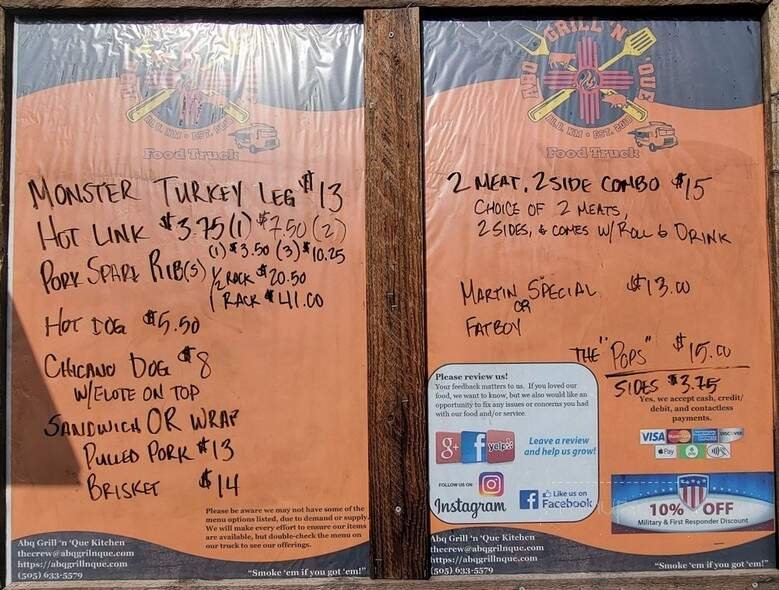 Food Truck
MONSTER TURKEY LEG $13
HOT LINK $3.75(1) $7.50(2)
PORK SPARE RIB(S) (1) $3.50 (3) $10.25
1/2 RACK $20.50
1 RACK $41.00
HOT DOG $5.50
CHICANO DOG $8
W/ELOTE ON TOP
SANDWICH OR WRAP
PULLED PORK $13
BRISKET $14
Please be aware we may not have some of the
menu options listed, due to demand or supply.
We will make every effort to ensure our items
are available, but double-check the menu on
our truck to see our offerings.
Abq Grill 'n 'Que Kitchen
thecrew@abqgrilnque.com
https://abqgrillnque.com
(505) 633-5579
"Smoke 'em if you got 'em!"
ABQ GRILL 'N 'QUE
Food Truck
2 MEAT, 2 SIDE COMBO $15
CHOICE OF 2 MEATS,
2 SIDES, & COMES W/ ROLL & DRINK
MARTIN SPECIAL $13.00
OR
FATBOY
THE "POPS" $15.00
SIDES $3.75
Please review us!
Your feedback matters to us. If you loved our
food, we want to know, but we also would like an
opportunity to fix any issues or concerns you had
with our food and/or service.
g+ f yelp
Leave a review
and help us grow!
FOLLOW US ON
Instagram
f Like us on
Facebook
Yes, we accept cash, credit/
debit, and contactless
payments.
VISA DISCOVER
Pay
10% OFF
Military & First Responder Discount
Abq Grill 'n 'Que Kitchen
thecrew@abqgrilnque.com
https://abqgrillnque.com
(505) 633-5579
"Smoke 'em if you got 'em!"